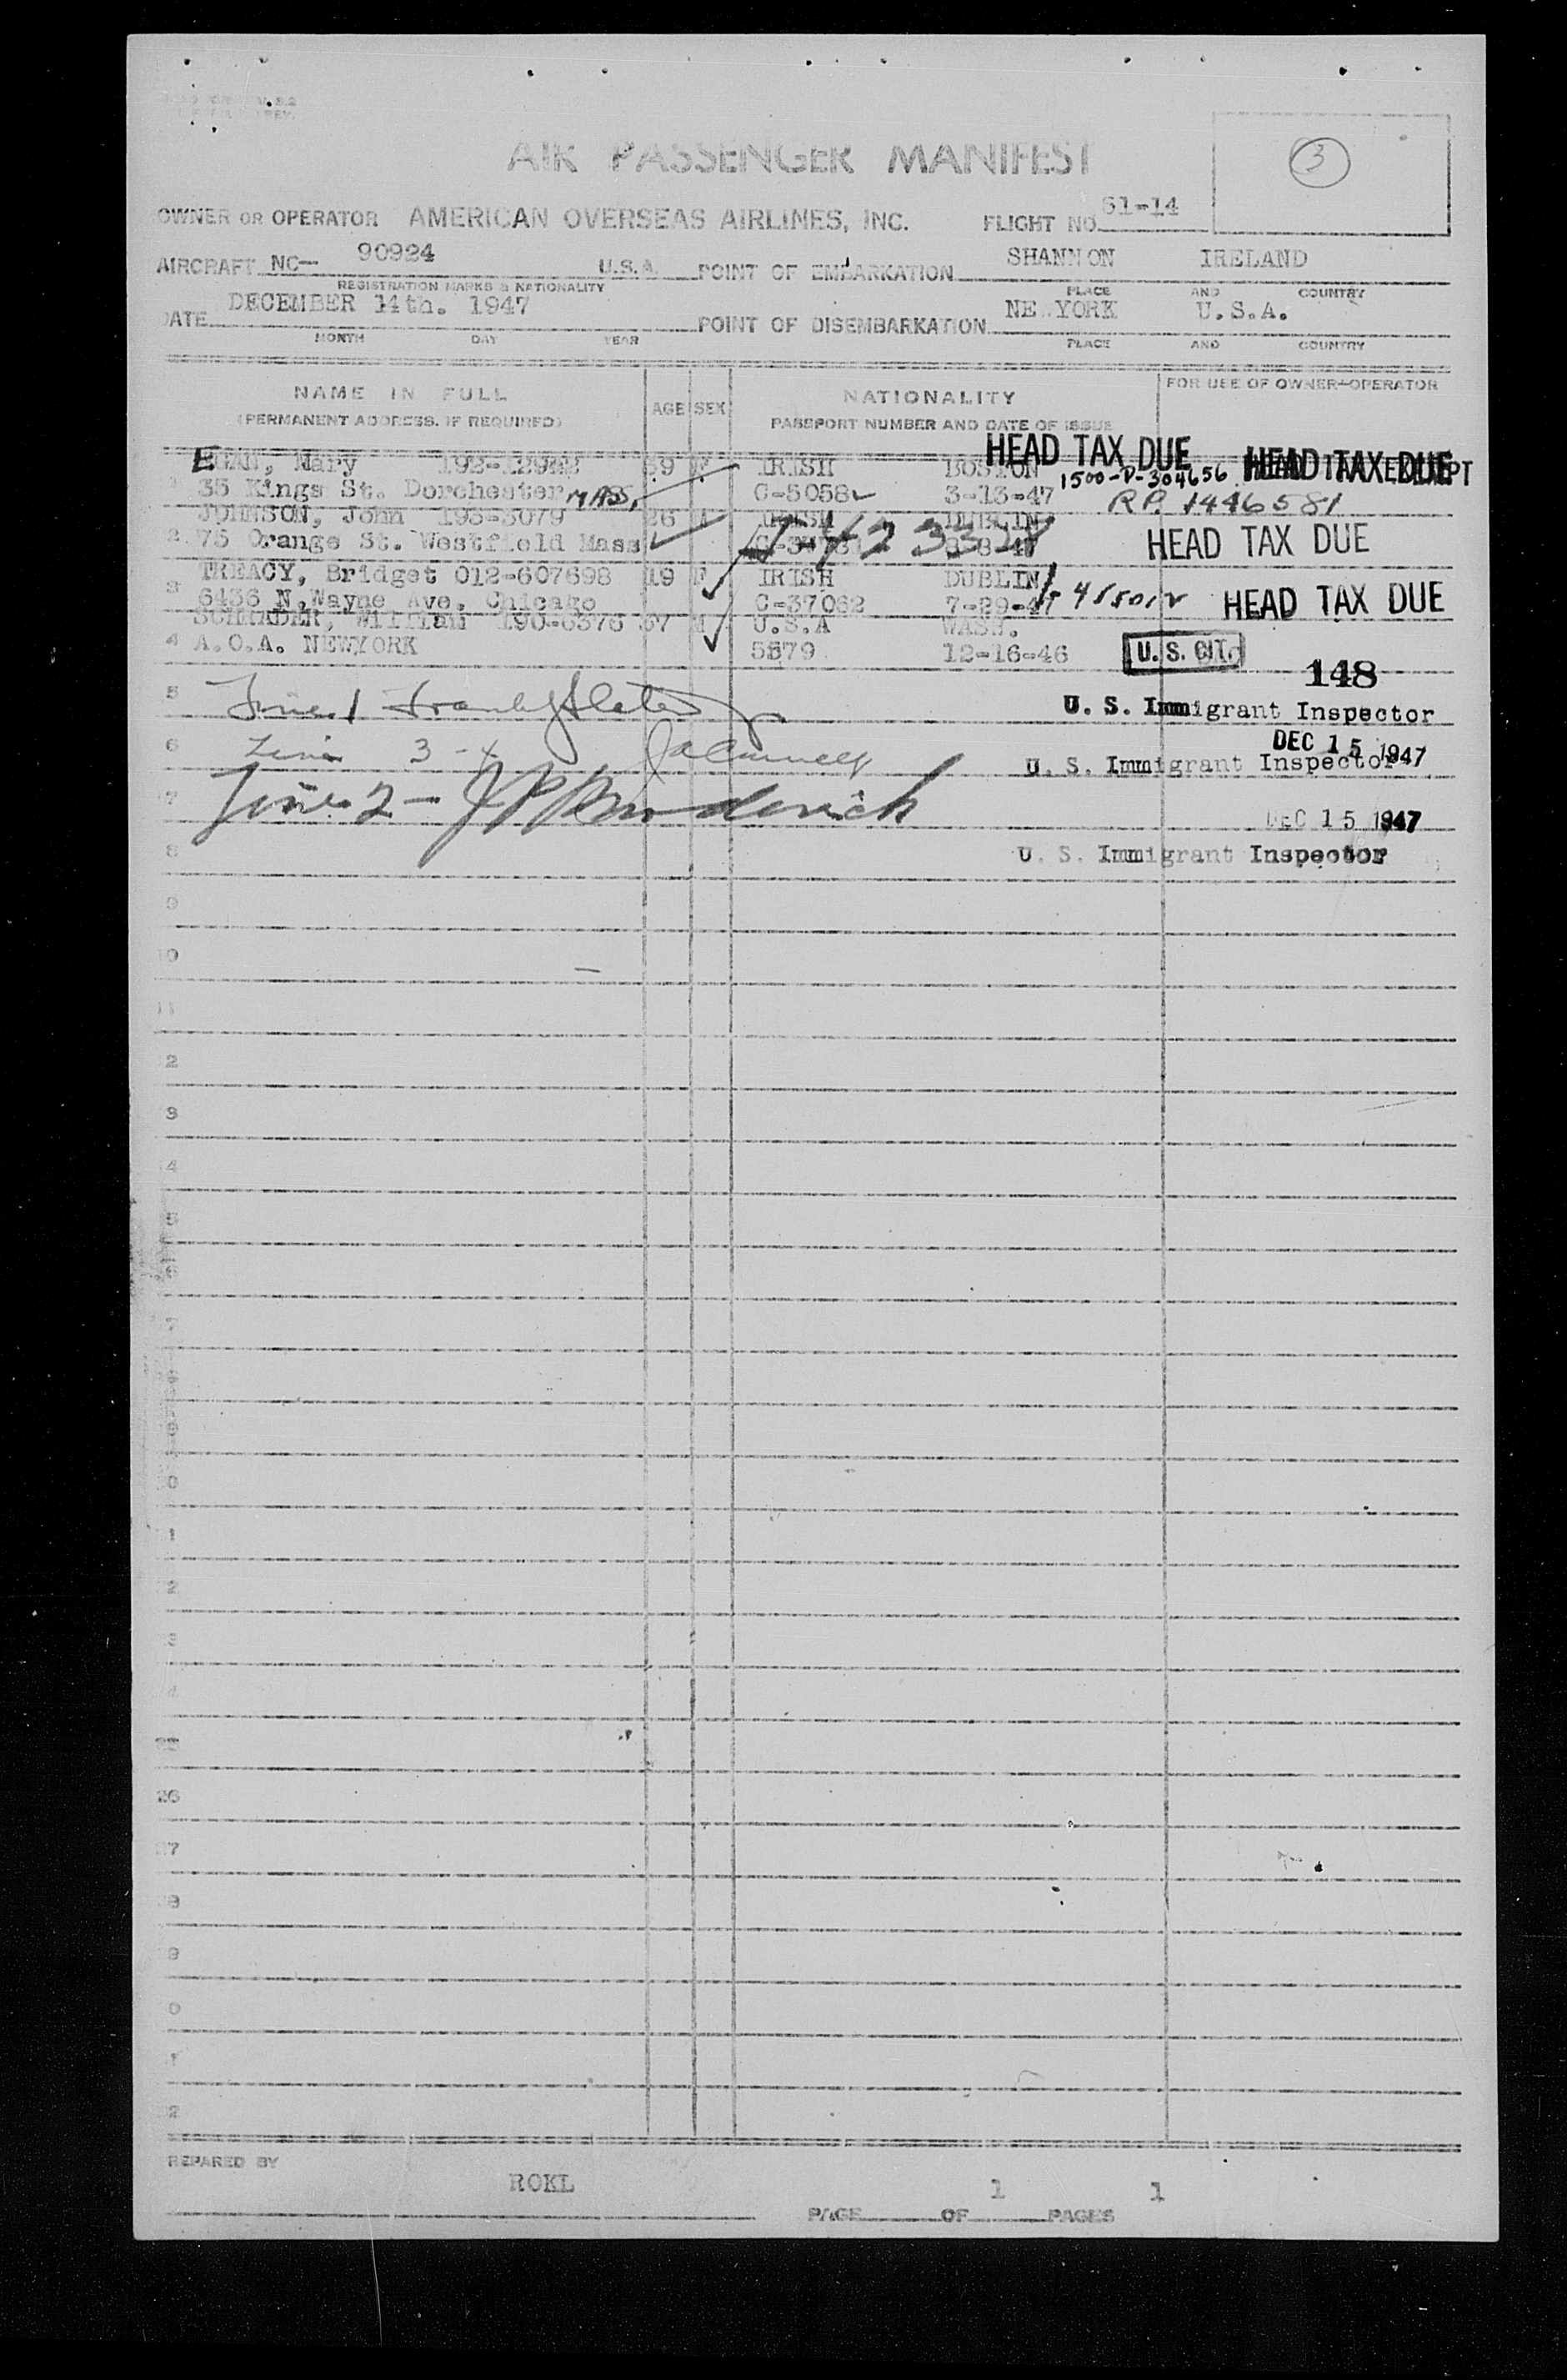 AIR PASSENGER MANIFEST
3
OWNER OR OPERATOR AMERICAN OVERSEAS AIRLINES, INC. FLIGHT NO. 61-14
AIRCRAFT NC- 90924 U.S.A. POINT OF EMBARKATION SHANNON IRELAND
REGISTRATION MARKS & NATIONALITY PLACE AND COUNTRY
DATE DECEMBER 14th. 1947 POINT OF DISEMBARKATION NE YORK U.S.A.
MONTH DAY YEAR PLACE AND COUNTRY
NAME IN FULL AGE SEX NATIONALITY FOR USE OF OWNER-OPERATOR
(PERMANENT ADDRESS, IF REQUIRED) PASSPORT NUMBER AND DATE OF ISSUE
HEAD TAX DUE HEAD TAX DUE
Mary F IRISH BOSTON 1500-P-304656
35 Kings St. Dorchester MASS, C-5058 3-13-47 RP. 1446581
2 JOHNSON, John 193-3079 26 IRISH DUBLIN
175 Orange St. Westfield Mass HEAD TAX DUE
3 TREACY, Bridget 012-607698 19 F IRISH DUBLIN
6436 N. Wayne Ave. Chicago C-37062 7-29-47 HEAD TAX DUE
4 SCHRADER, William 190-6376 M U.S.A WASH.
A.O.A. NEWYORK 5579 12-16-46 U.S. CIT.
148
5 Line 1 U. S. Immigrant Inspector
DEC 15 1947
6 Line 3-4 U. S. Immigrant Inspector
7 Line 2- J P Broderick DEC 15 1947
8 U. S. Immigrant Inspector
9
10
11
2
3
4
5
6
7
9
0
1
2
3
4
26
27
8
9
0
1
2
PREPARED BY ROKL
PAGE 1 OF 1 PAGES